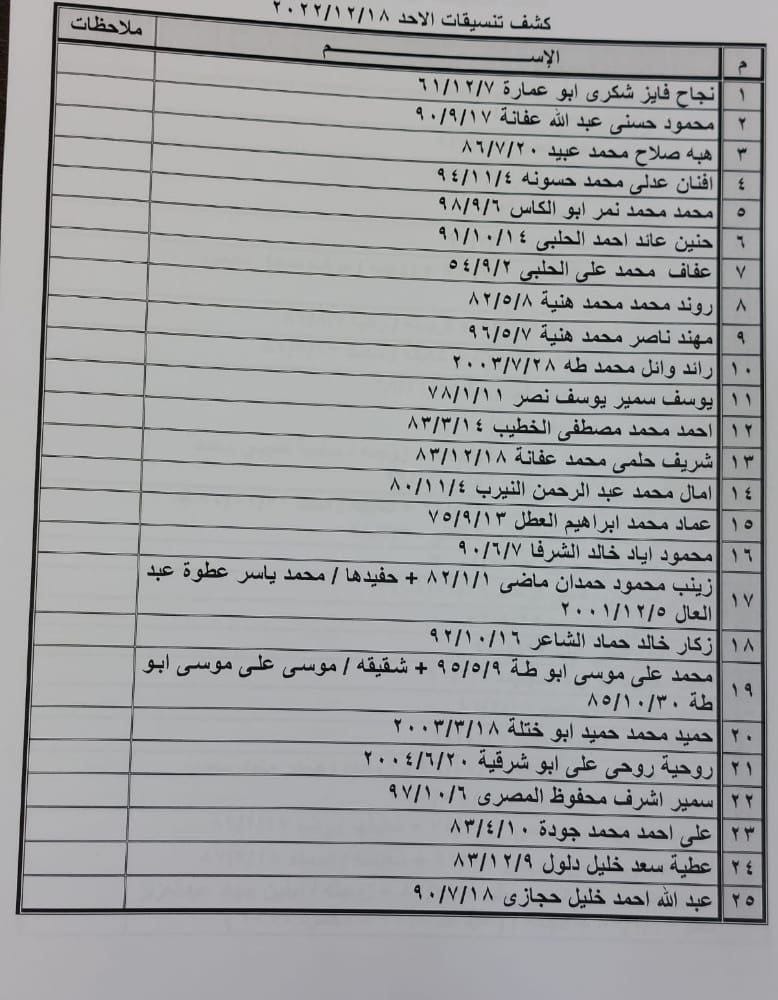 كشف تنسيقات الاحد ٢٠٢٢/١٢/١٨
م الإســـــــــــــم ملاحظات
١ نجاح فايز شكرى ابو عمارة ٦١/١٢/٧
٢ محمود حسنى عبد الله عفانة ٩٠/٩/١٧
٣ هبه صلاح محمد عبيد ٨٦/٧/٢٠
٤ افنان عدلى محمد حسونه ٩٤/١١/٤
٥ محمد محمد نمر ابو الكاس ٩٨/٩/٦
٦ حنين عائد احمد الحلبى ٩١/١٠/١٤
٧ عفاف محمد على الحلبى ٥٤/٩/٢
٨ روند محمد محمد هنية ٨٢/٥/٨
٩ مهند ناصر محمد هنية ٩٦/٥/٧
١٠ رائد وائل محمد طه ٢٠٠٣/٧/٢٨
١١ يوسف سمير يوسف نصر ٧٨/١/١١
١٢ احمد محمد مصطفى الخطيب ٨٣/٣/١٤
١٣ شريف حلمى محمد عفانة ٨٣/١٢/١٨
١٤ امال محمد عبد الرحمن النيرب ٨٠/١١/٤
١٥ عماد محمد ابراهيم العطل ٧٥/٩/١٣
١٦ محمود اياد خالد الشرفا ٩٠/٦/٧
١٧ زينب محمود حمدان ماضى ٨٢/١/١ + حفيدها / محمد ياسر عطوة عبد
العال ٢٠٠١/١٢/٥
١٨ زكار خالد حماد الشاعر ٩٢/١٠/١٦
١٩ محمد على موسى ابو طة ٩٥/٥/٩ + شقيقه / موسى على موسى ابو
طة ٨٥/١٠/٣٠
٢٠ حميد محمد حميد ابو ختلة ٢٠٠٣/٣/١٨
٢١ روحية روحى على ابو شرقية ٢٠٠٤/٦/٢٠
٢٢ سمير اشرف محفوظ المصرى ٩٧/١٠/٦
٢٣ على احمد محمد جودة ٨٣/٤/١٠
٢٤ عطية سعد خليل دلول ٨٣/١٢/٩
٢٥ عبد الله احمد خليل حجازى ٩٠/٧/١٨